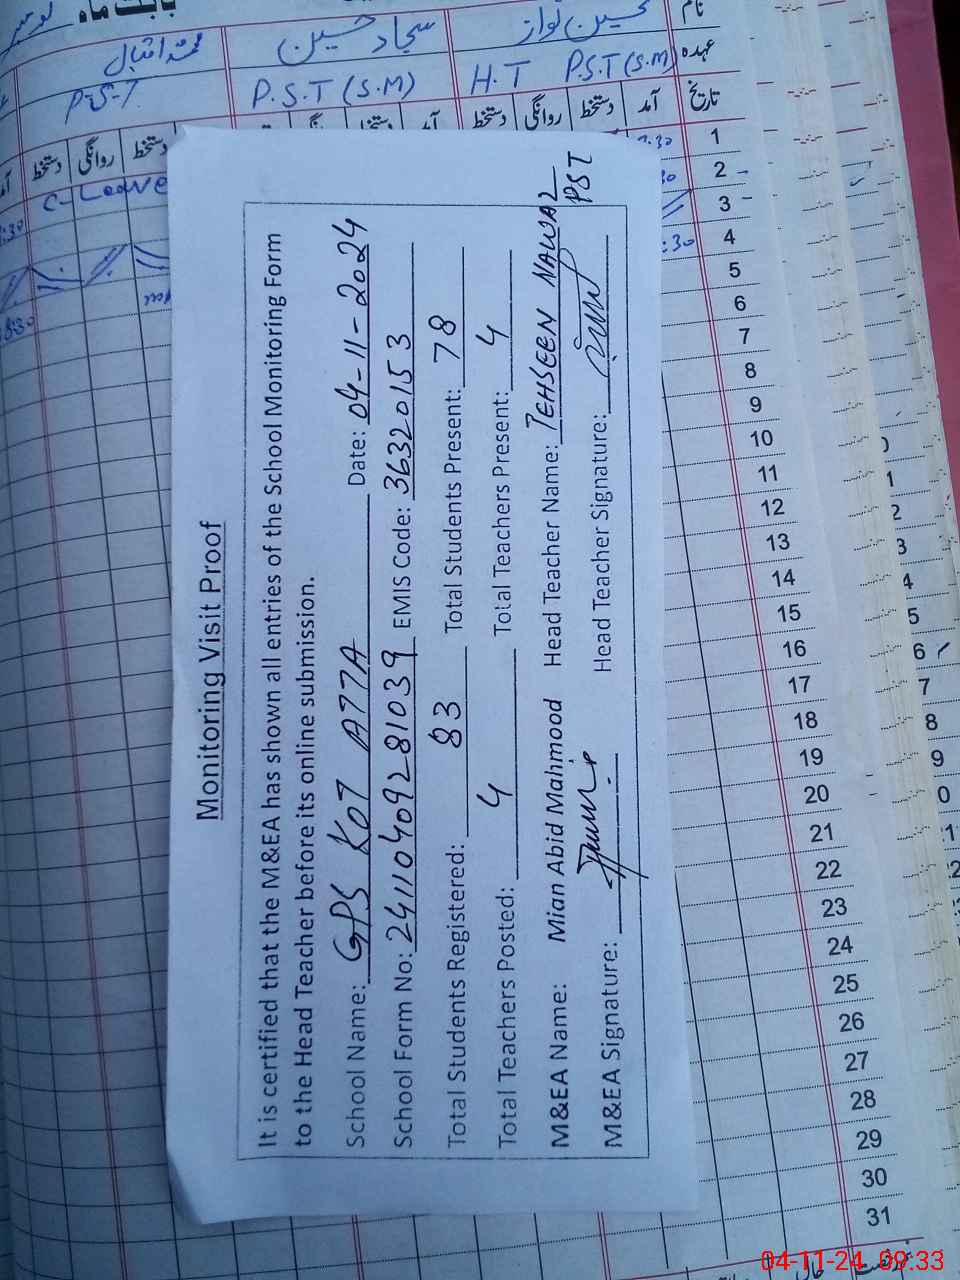 بابت ماہ
نام
تحسین نواز
سجاد حسین
محمد اقبال
عہدہ
H.T P.S.T (S.M)
P.S.T (S.M)
P.S.T
تاریخ
آمد
دستخط
روانگی
دستخط
آمد
دستخط
روانگی
دستخط
C- Leave
8:30
Monitoring Visit Proof
It is certified that the M&EA has shown all entries of the School Monitoring Form
to the Head Teacher before its online submission.
School Name: GPS KOT ATTA Date: 04-11-2024
School Form No: 24110409281039 EMIS Code: 36320153
Total Students Registered: 83 Total Students Present: 78
Total Teachers Posted: 4 Total Teachers Present: 4
M&EA Name: Mian Abid Mahmood Head Teacher Name: TEHSEEN NAWAZ PST
M&EA Signature: Head Teacher Signature:
1
2
3
4
5
6
7
8
9
10
11
12
13
14
15
16
17
18
19
20
21
22
23
24
25
26
27
28
29
30
31
04-11-24 09:33